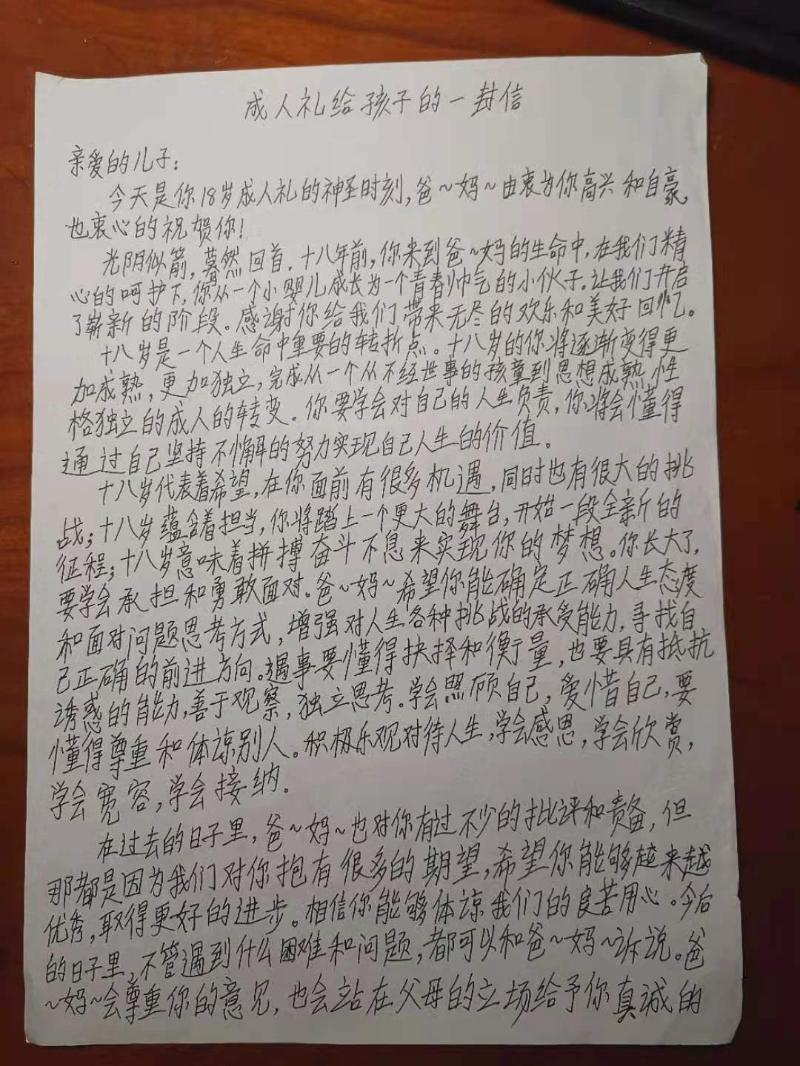 成人礼给孩子的一封信
亲爱的儿子:
今天是你18岁成人礼的神圣时刻,爸~妈~由衷为你高兴和自豪,
也衷心的祝贺你!
光阴似箭,蓦然回首,十八年前,你来到爸~妈的生命中,在我们精
心的呵护下,你从一个小婴儿成长为一个青春帅气的小伙子.让我们开启
了崭新的阶段。感谢你给我们带来无尽的欢乐和美好回忆。
十八岁是一个人生命中重要的转折点。十八岁的你将逐渐变得更
加成熟,更加独立,完成从一个从不经世事的孩童到思想成熟,性
格独立的成人的转变.你要学会对自己的人生负责,你将会懂得
通过自己坚持不懈的努力实现自己人生的价值。
十八岁代表着希望,在你面前有很多机遇,同时也有很大的挑
战;十八岁蕴含着担当,你将踏上一个更大的舞台,开始一段全新的
征程;十八岁意味着拼搏奋斗不息来实现你的梦想。你长大了,
要学会承担和勇敢面对。爸~妈~希望你能确定正确人生态度
和面对问题思考方式,增强对人生各种挑战的承受能力,寻找自
己正确的前进方向。遇事要懂得抉择和衡量,也要具有抵抗
诱惑的能力,善于观察,独立思考。学会照顾自己,爱惜自己,要
懂得尊重和体谅别人。积极乐观对待人生,学会感恩,学会欣赏,
学会宽容,学会接纳.
在过去的日子里,爸~妈~也对你有过不少的批评和责备,但
那都是因为我们对你抱有很多的期望,希望你能够越来越
优秀,取得更好的进步。相信你能够体谅我们的良苦用心。今后
的日子里,不管遇到什么困难和问题,都可以和爸~妈~诉说。爸
~妈~会尊重你的意见,也会站在父母的立场给予你真诚的